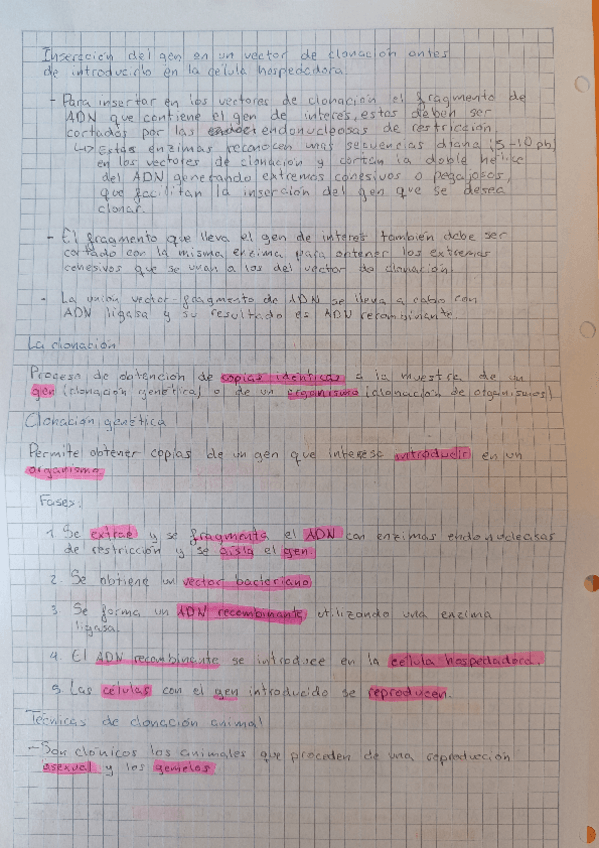 Inserción del gen en un vector de clonación antes
de introducirlo en la célula hospedadora.
- Para insertar en los vectores de clonación el fragmento de
ADN que contiene el gen de interés, estos deben ser
cortados por las endonucleasas de restricción.
↳ Estas enzimas reconocen unas secuencias diana (5-10 pb)
en los vectores de clonación y cortan la doble hélice
del ADN generando extremos cohesivos o pegajosos,
que facilitan la inserción del gen que se desea
clonar.
- El fragmento que lleva el gen de interés también debe ser
cortado con la misma enzima para obtener los extremos
cohesivos que se unan a los del vector de clonación.
- La unión vector-fragmento de ADN se lleva a cabo con
ADN ligasa y su resultado es ADN recombinante.
La clonación
Proceso de obtención de copias idénticas a la muestra de un
gen (clonación genética) o de un organismo (clonación de organismos)
Clonación genética
Permite obtener copias de un gen que interese introducir en un
organismo
Fases:
1. Se extrae y se fragmenta el ADN con enzimas endonucleasas
de restricción y se aísla el gen.
2. Se obtiene un vector bacteriano
3. Se forma un ADN recombinante utilizando una enzima
ligasa.
4. El ADN recombinante se introduce en la célula hospedadora.
5. Las células con el gen introducido se reproducen.
Técnicas de clonación animal
- Son clónicos los animales que proceden de una reproducción
asexual y los gemelos